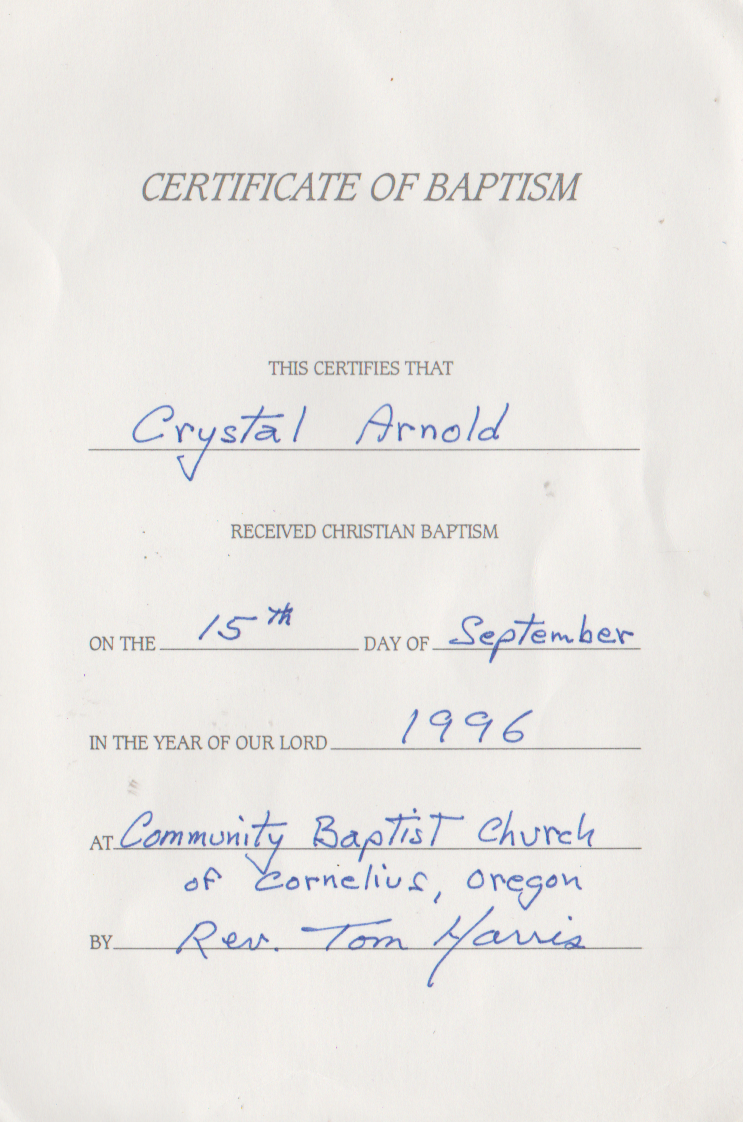 CERTIFICATE OF BAPTISM
THIS CERTIFIES THAT
Crystal Arnold
RECEIVED CHRISTIAN BAPTISM
ON THE 15th DAY OF September
IN THE YEAR OF OUR LORD 1996
AT Community Baptist Church
of Cornelius, Oregon
BY Rev. Tom Harris